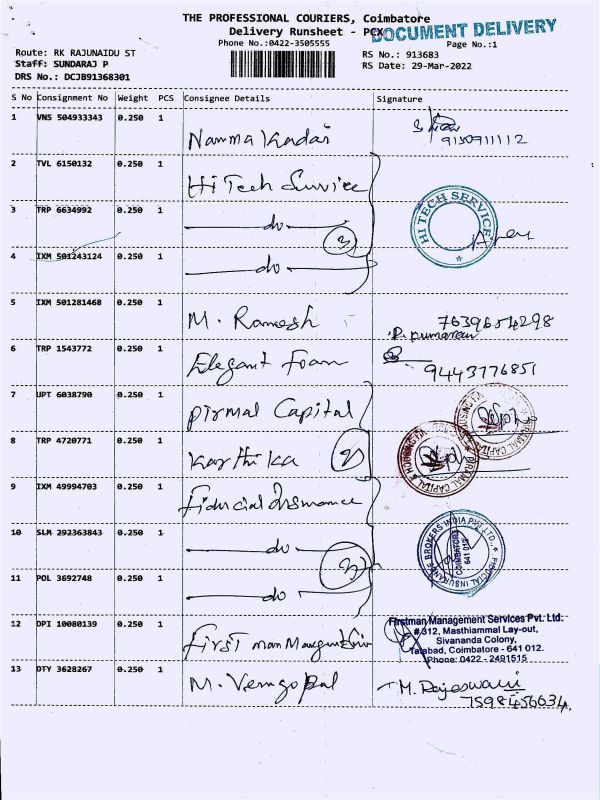 THE PROFESSIONAL COURIERS, Coimbatore
Delivery Runsheet - PCX
DOCUMENT DELIVERY
Phone No.:0422-3505555
Page No.:1
Route: RK RAJUNAIDU ST
RS No.: 913683
Staff: SUNDARAJ P
RS Date: 29-Mar-2022
DRS No.: DCJB91368301
S No Consignment No Weight PCS Consignee Details Signature
1 VNS 504933343 0.250 1 Namma Kadai 9150911112
2 TVL 6150132 0.250 1 Hi Tech Service
3 TRP 6634992 0.250 1 do
HI TECH SERVICE
3
4 IXM 501243124 0.250 1 do
5 IXM 501281468 0.250 1 M. Ramesh 7639654298
P. Kumaran
6 TRP 1543772 0.250 1 Elegant Foam 9443776851
7 UPT 6038790 0.250 1 Pirmal Capital
8 TRP 4720771 0.250 1 Karthika
2
PIRAMAL CAPITAL & HOUSING
9 IXM 49994703 0.250 1 Fiducial Insurance
10 SLM 292363843 0.250 1 do
3
FIDUCIAL INSURANCE BROKERS INDIA PVT LTD.,
COIMBATORE
641 012
11 POL 3692748 0.250 1 do
12 DPI 10080139 0.250 1 First man
Firstman Management Services Pvt. Ltd.
# 312, Masthiammal Lay-out,
Sivananda Colony,
Tatabad, Coimbatore - 641 012.
Phone: 0422 - 2491515
13 DTY 3628267 0.250 1 M. Venugopal M. Rajeswari
7598456634